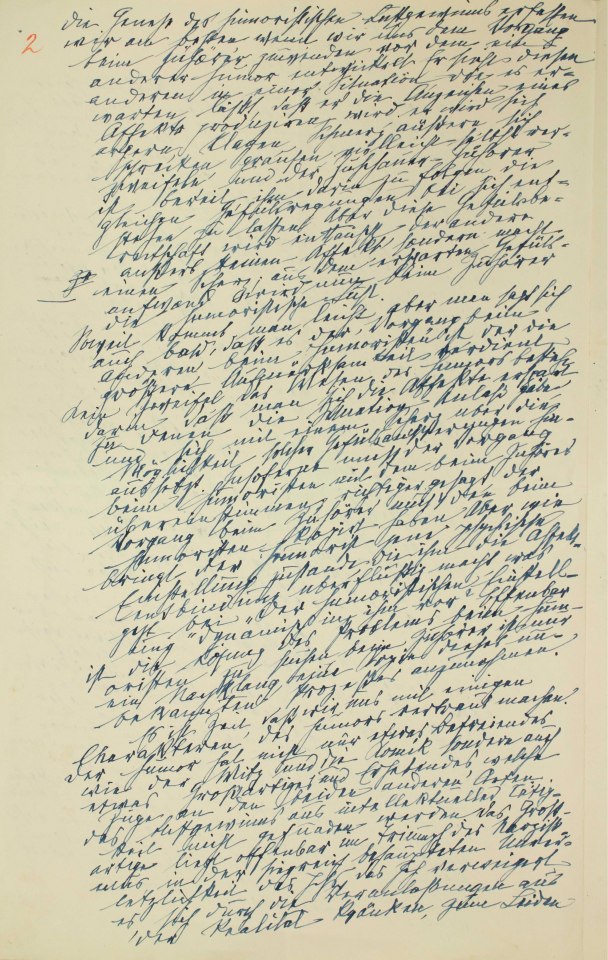 2
die Genese des humoristischen Lustgewinns erfassen
wir am besten wenn wir uns dem Vorgang
beim Zuhörer zuwenden vor dem ein
anderer Humor entwickelt. Er sieht diesen
anderen in einer Situation die es er=
warten läßt, daß er die Anzeichen eines
Affekts produziren wird, er wird sich
ärgern klagen, Schmerz äussern sich
schrecken grausen, vielleicht selbst ver=
zweifeln, und der Zuschauer-Zuhörer
ist bereit ihm darin zu folgen, die
gleichen Gefühlsregungen bei sich ent=
stehen zu lassen. Aber diese Gefühlsbe=
reitschaft wird enttäuscht, der andere
äussert keinen Affekt sondern macht
einen Scherz, aus dem ersparten Gefühls-
aufwand wird nun beim Zuhörer
die humoristische Lust.
Soweit kommt man leicht, aber man sagt sich
auch bald, daß es der Vorgang beim
Anderen beim „Humoristen" ist der die
grössere Aufmerksamkeit verdient
Kein Zweifel, das Wesen des Humors besteht
darin, daß man sich die Affekte erspart
zu denen die Situation Anlaß gäbe
und sich mit einem Scherz über die
Möglichkeit solcher Gefühlsäusserungen hin-
aussetzt. Insoferne muß der Vorgang
beim Humoristen mit dem beim Zuhörer
übereinstimmen, richtiger gesagt der
Vorgang beim Zuhörer muß den beim
Humoristen kopirt haben. Aber wie
bringt der Humorist jene psychische
Einstellung zustande die ihm die Affekt-
entbindung überflüssig macht, was
geht bei „der humoristischen Einstell-
ung" dynamisch in ihm vor? Offenbar
ist die Lösung des Problems beim Hum-
oristen zu suchen beim Zuhörer ist nur
ein Nachklang eine Kopie dieses un-
bekannten Prozesses anzunehmen.
Es ist Zeit, daß wir uns mit einigen
Charakteren des Humors vertraut machen.
Der Humor hat nicht nur etwas Befreiendes
wie der Witz und die Komik sondern auch
etwas Großartiges und Erhebendes welche
Züge an den beiden anderen Arten
des Lustgewinns aus intellektueller Tätig-
keit nicht gefunden werden. Das Groß-
artige liegt offenbar im Triumph des Narciß-
mus in der siegreich behaupteten Unver-
letzlichkeit des Ichs. Das Ich verweigert
es sich durch die Veranlassungen aus
der Realität kränken, zum Leiden